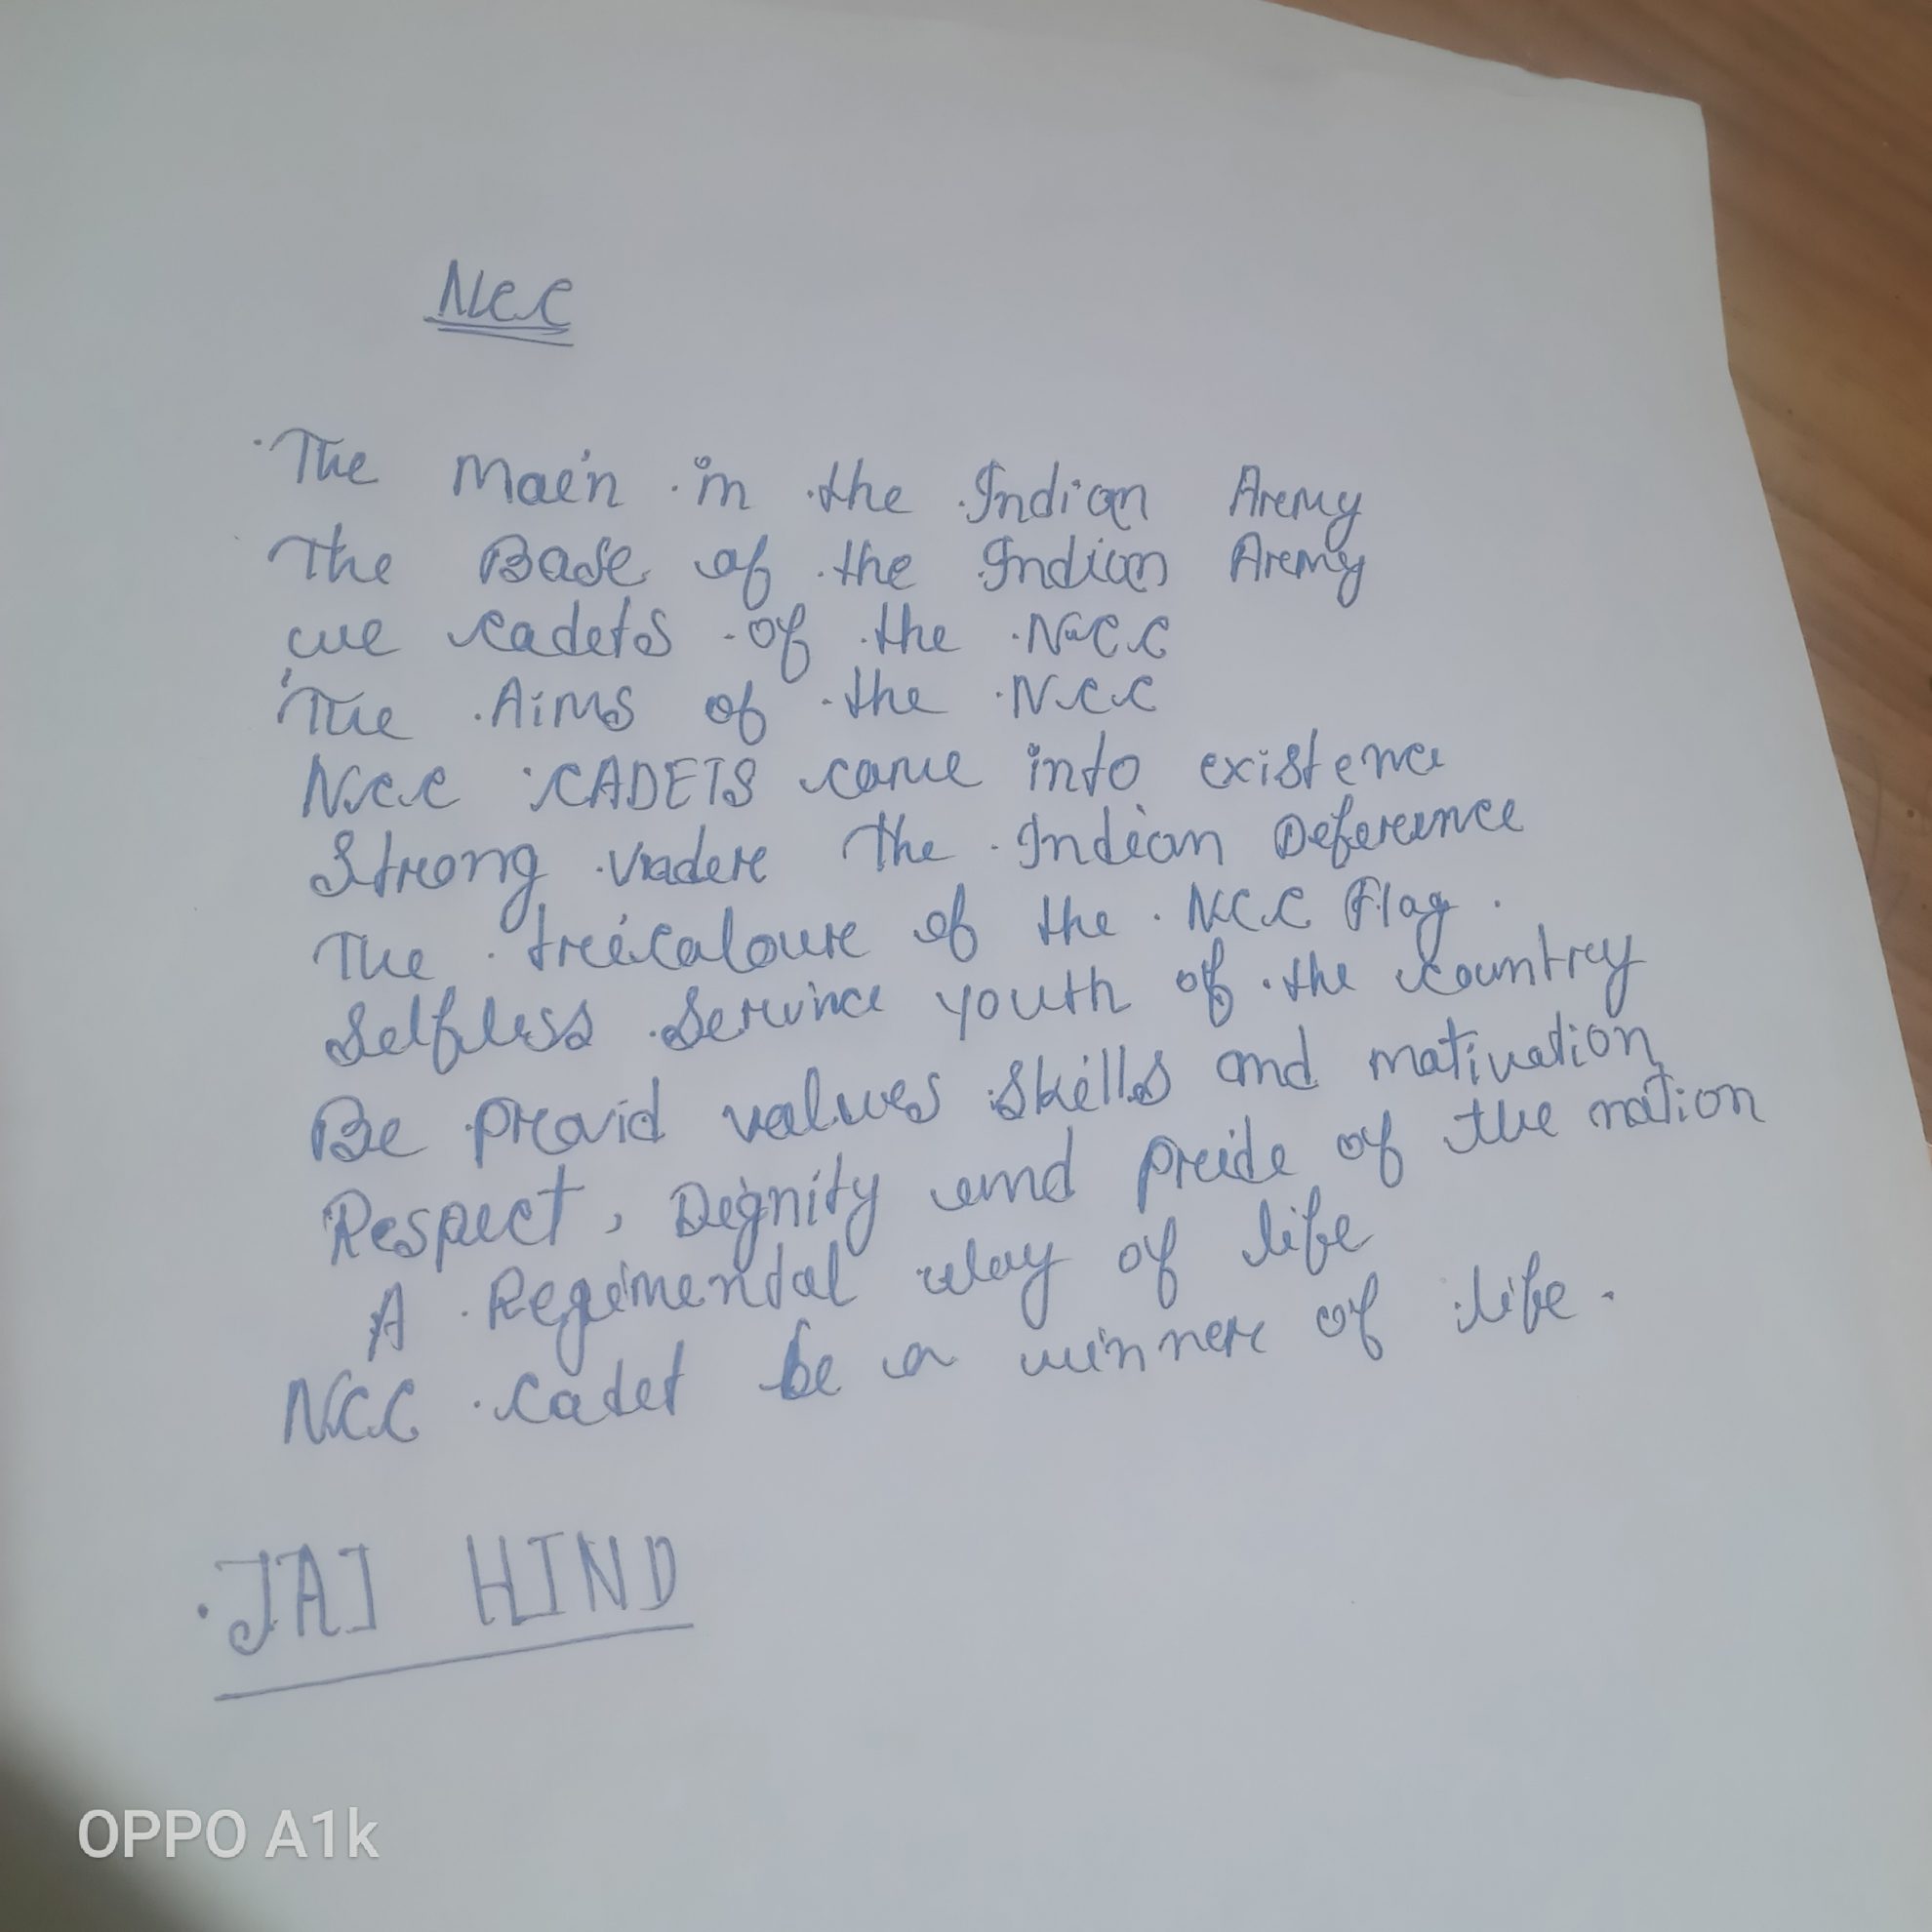 NCC
The Main in the Indian Army
The Base of the Indian Army
we cadets of the NCC
The Aims of the NCC
NCC CADETS came into existence
Strong under the Indian Deference
The tricaloure of the NCC Flag.
Selfless Service youth of the country
Be provid values skills and mativation
Respect, Dignity and pride of the nation
A Regimental way of life
NCC cadet be a winner of life.
JAI HIND
OPPO A1k